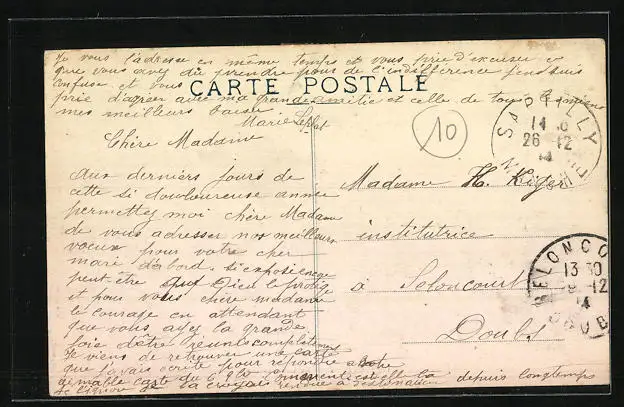 Je vous l'adresse en même temps et vous prie d'excuser ce
que vous avez dû prendre pour de l'indifférence j'en suis
confuse et vous
CARTE POSTALE
prie d'agréer avec ma grande amitié et celle de tous
mes meilleurs baisers
Marie
Chère Madame
Aux derniers jours de
cette si douloureuse année
permettez moi chère Madame
de vous adresser nos meilleurs
voeux pour votre cher
mari d'abord, si exposé encore
peut-être que Dieu le protège
et pour vous chère madame
le courage en attendant
que vous ayez la grande
joie d'être réunis complètement
Je viens de retrouver une carte
que j'avais écrite pour répondre à votre
aimable carte du comment est elle là depuis longtemps
je l'ignore je la croyais rendue à destination
10
Madame H.
institutrice
à Seloncourt
Doubs
SARTILLY
14
26 12
14
SELONCOURT
13 30
12
14
DOUBS